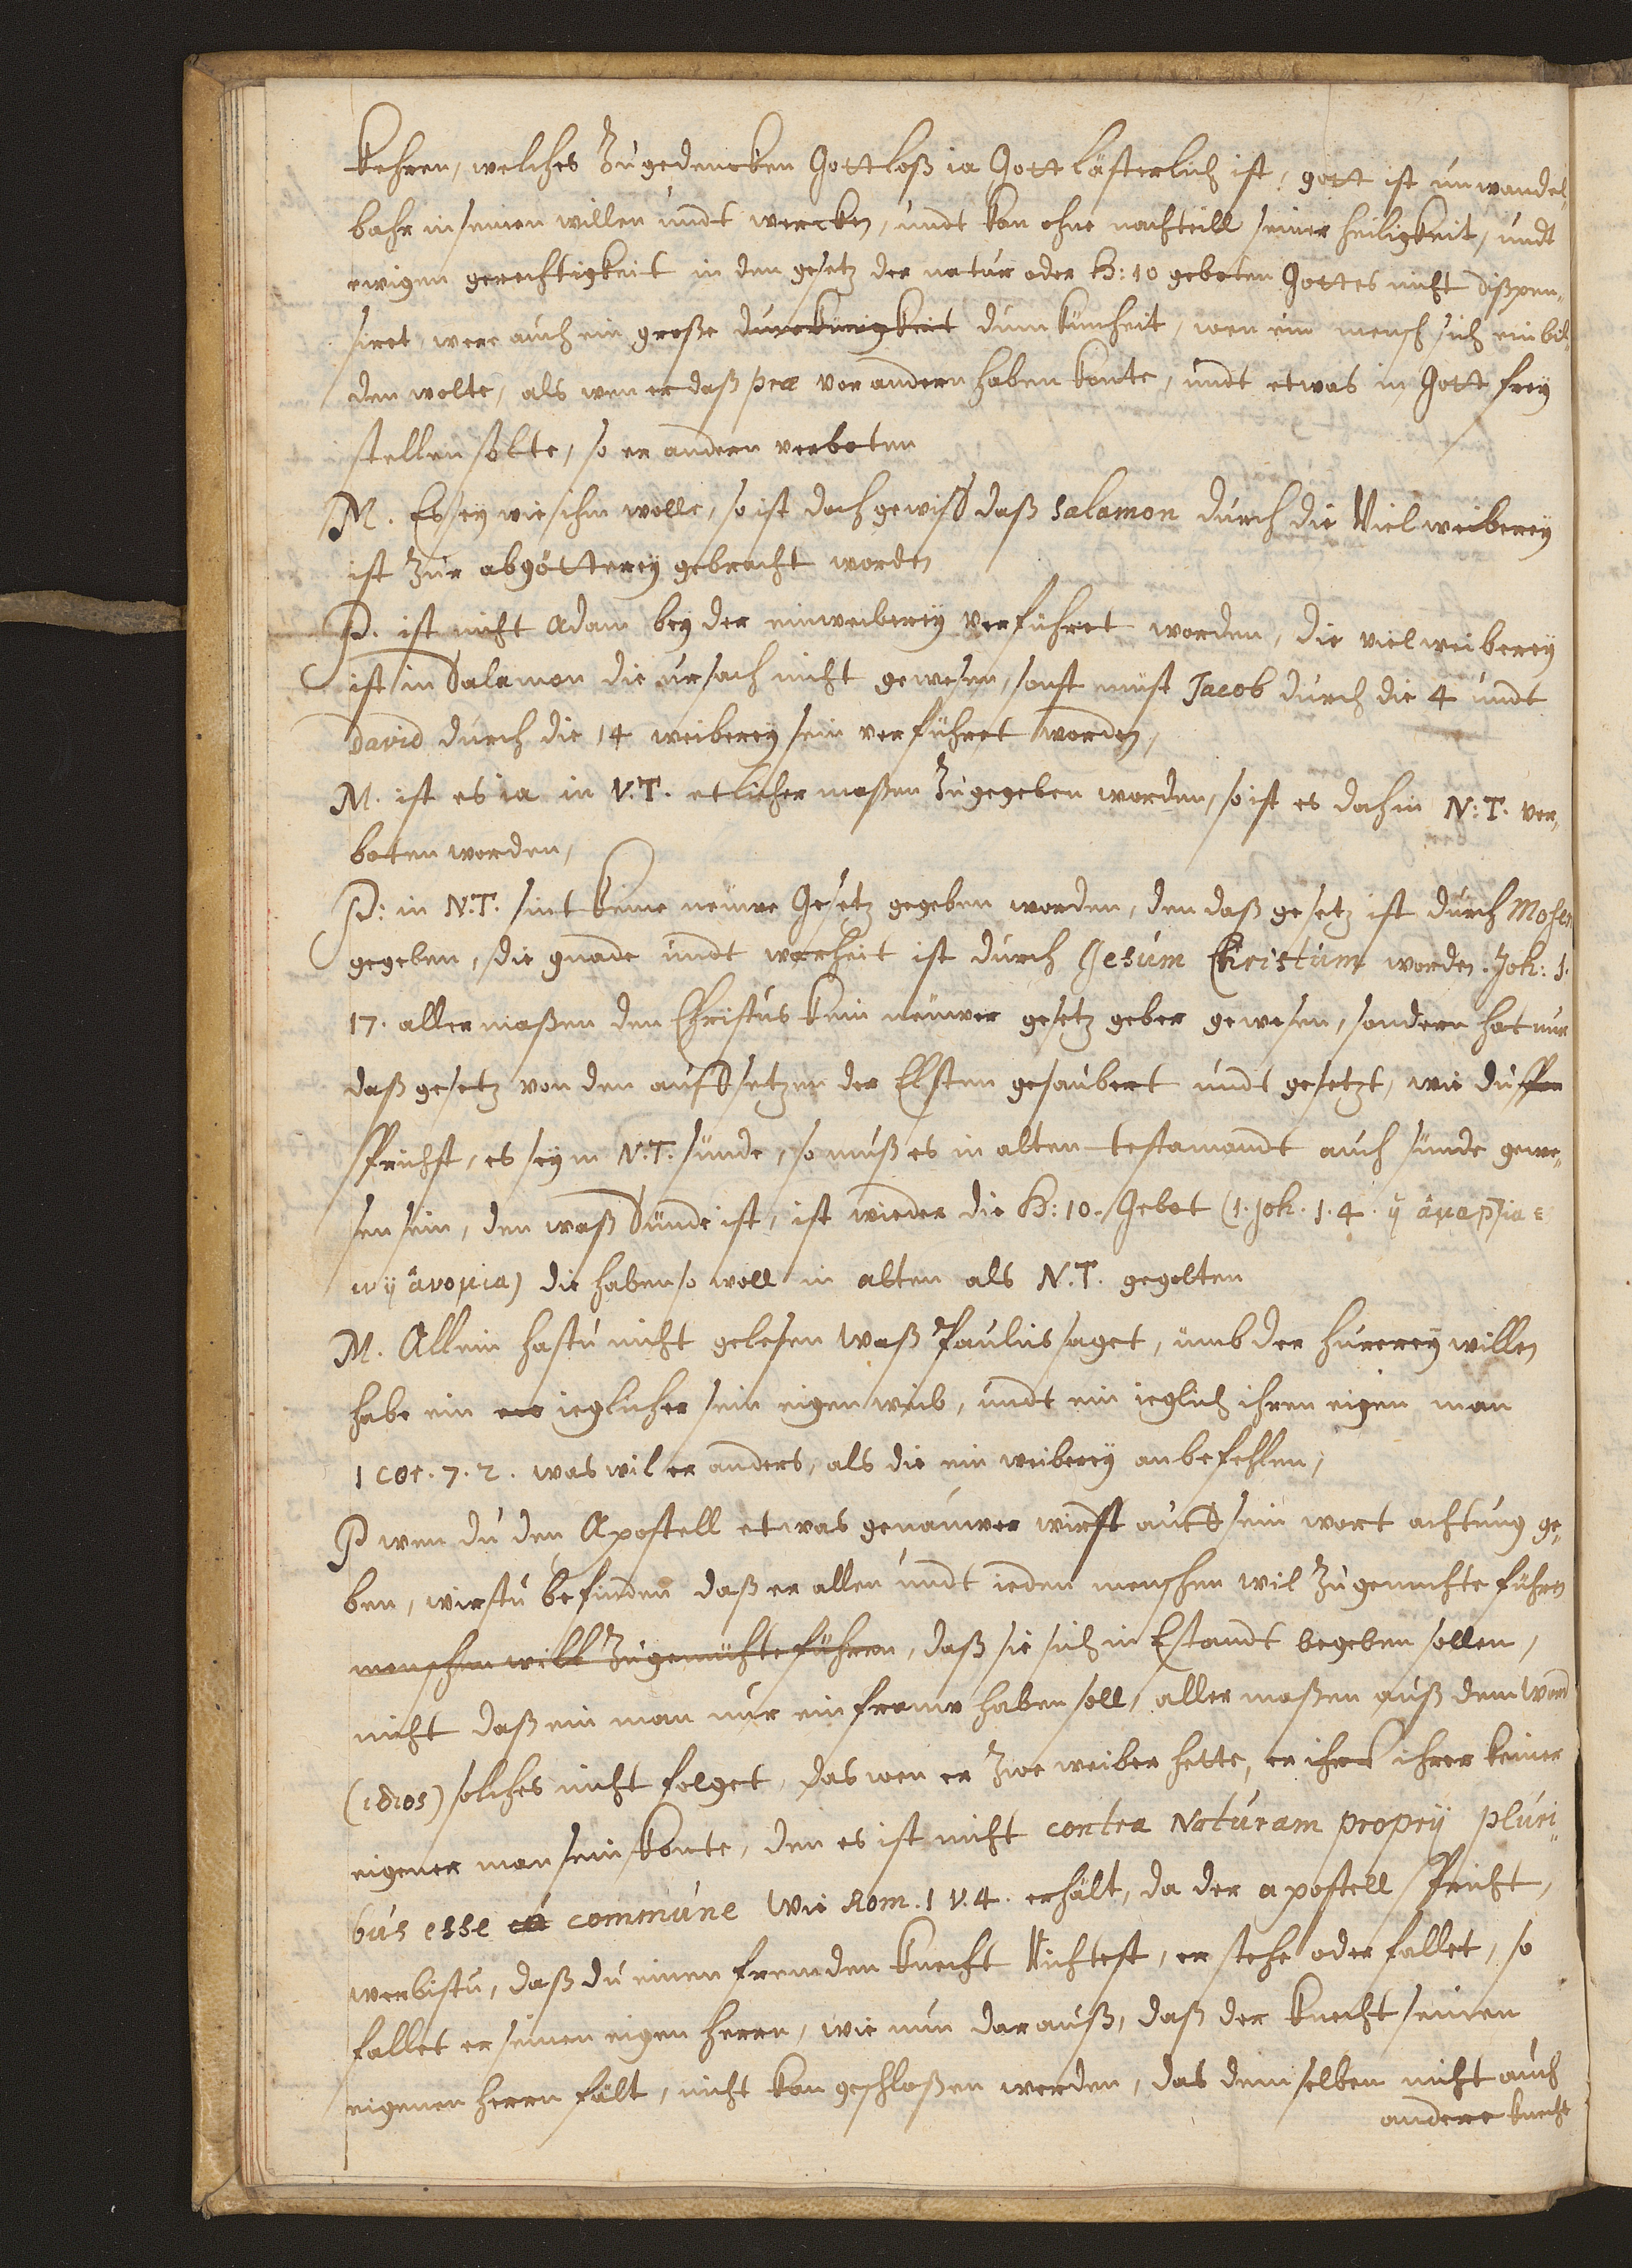 kehren, welches zugedencken Gottloß ia Gottlästerlich ist, gott ist unwandel„
bahr in seinen willen undt wercken, undt kan ohne nachteill seiner heiligkeit, undt
ewigen gerechtigkeit in den gesetz der natur oder H: 10 geboten Gottes nicht dißpen„
siret, were auch ein große dumkünigkeit dumkünheit, wen ein mensch sich einbil„
den wolte, als wen er daß præ vor andern haben konte, undt etwas in Gott frey
stellen solte, so er andern verboten
M. Es sey wie ihm wolle, so ist doch gewiß daß Salamon durch die Vielweiberey
ist zur abgötterey gebracht worden
P. ist nicht Adam bey der einweiberey verführet worden, die vielweiberey
ist in Salamon die ursach nicht gewesen, sonst müst Jacob durch die 4 undt
David durch die 14 weiberey sein verführet worden,
M. ist es ia in V.T. etlicher maßen zugegeben worden, so ist es doch in N:T. ver„
boten worden,
P: in N.T. sint keine neuwe Gesetz gegeben worden, den daß gesetz ist durch Moses
gegeben, die gnade undt warheit ist durch Jesum Christum worden. Joh: 1.
17. aller maßen den Christus kein neuwer gesetz geber gewesen, sondern hat nur
daß gesetz von den auffsetzen der Elsten gesaubert undt gesetzt, wie du
sprichst, es sey in N.T. sünde, so muß es in alten testamandt auch sünde gewe„
sen sein, den waß Sünde ist, ist wieder die H: 10. Gebot (1. Joh. 1. 4. ἡ ἁμαρτία ε
ιν ἡ ἀνομία) die haben so woll in alten als N.T. gegolten
M. Allein hastu nicht gelesen waß Paulus saget, umb der hurerey willen
habe ein ieglicher sein eigen weib, undt ein ieglich ihren eigen man
1 Cor. 7. 2. was wil er anders, als die ein weiberey anbefehlen,
P wen du den Apostell etwas genauwer wirst auff sein wort achtung ge„
ben, wirstu befinden daß er allen undt ieden menschen wil zugemühte führen
menschen will zugemühte führen, daß sie sich in Estandt begeben sollen,
nicht daß ein man nur ein frauw haben soll, aller maßen auß dem word
(ιδιος) solches nicht folget, das wen er zwe weiber hette, er ihre ihrer keiner
eigener man sein konte, den es ist nicht contra Naturam proprij pluri„
bus esse commune Wie Rom. 1 v. 4. erhält, da der apostell spricht,
wer bistu, daß du einen fremden knecht Richtest, er stehe oder fallet, so
fallet er seinen eigen herrn, wie nun darauß, daß der knecht seinen
eigenen herrn fält, nicht kan geschloßen werden, das demselben nicht auch
andere knecht